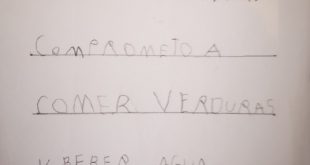 COMPROMETO A
COMER VERDURAS
Y BEBER AGUA